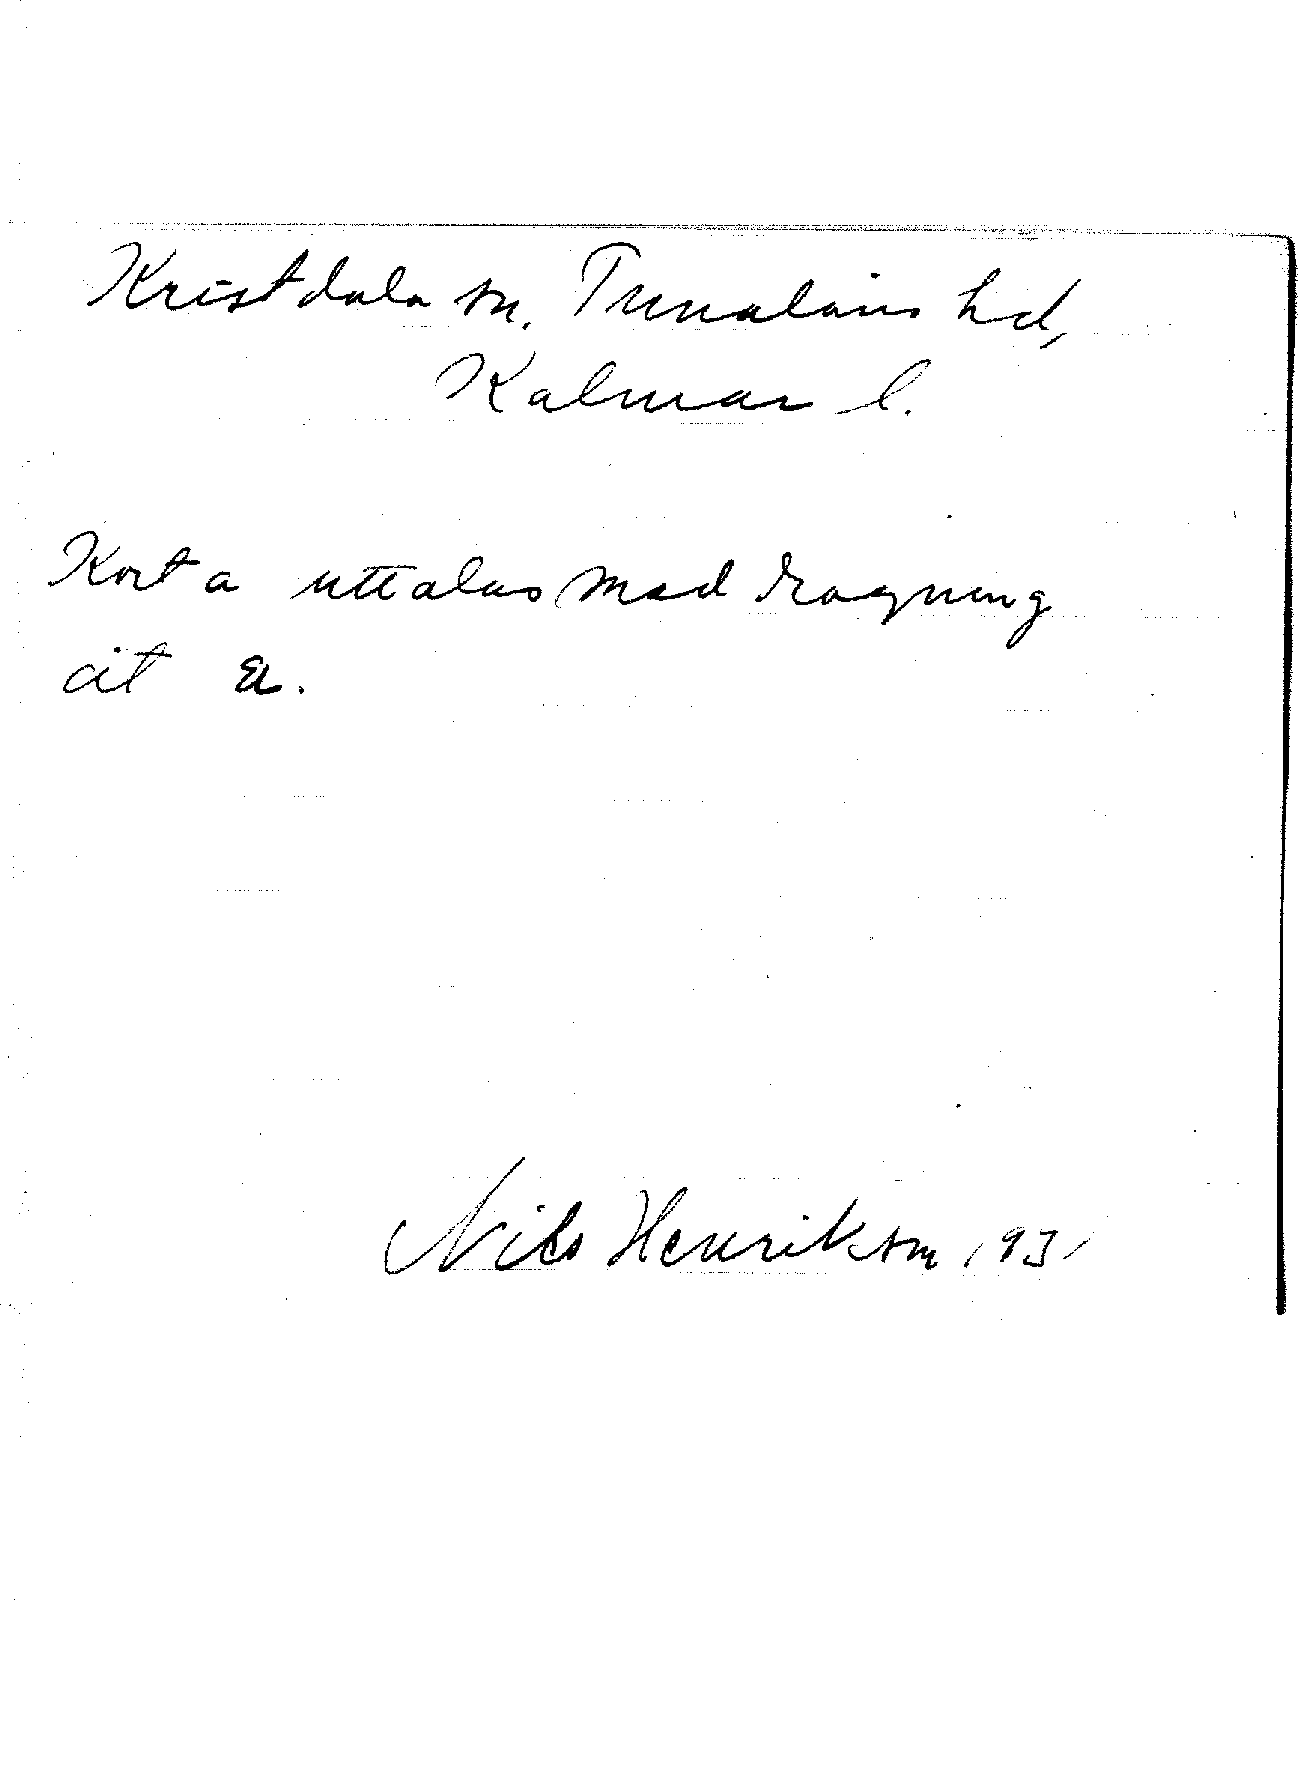 Kristdala sn. Tunaläns hd,
Kalmar l.
Kort a uttalas med dragning
åt ä.
Nils Henrikson 1931